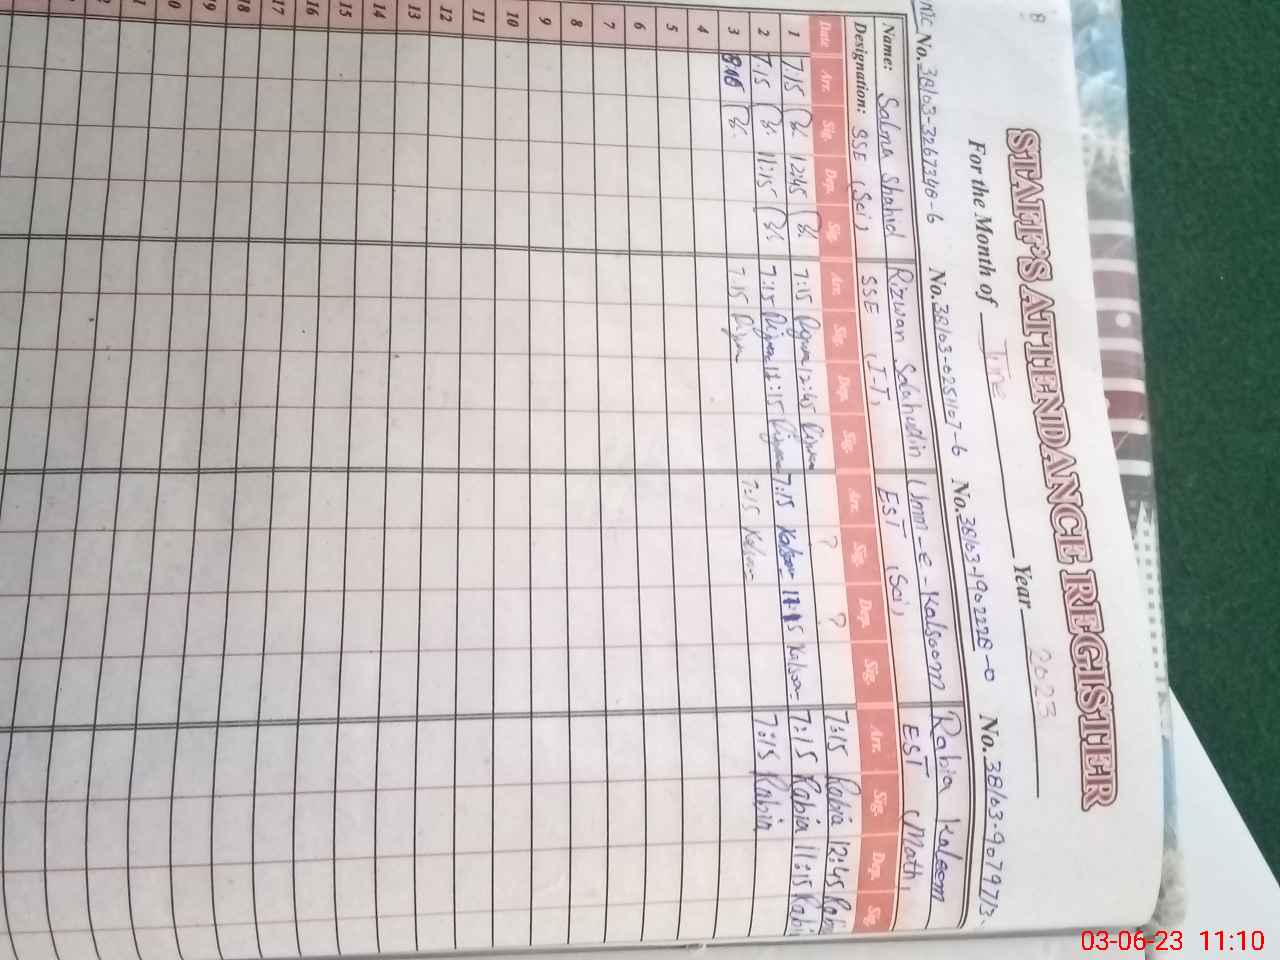 8
STAFF'S ATTENDANCE REGISTER
For the Month of June Year 2023
No. 38103-3267348-6 No. 38103-0251107-6 No. 38103-1902228-0 No. 38103-9079713-
Name: Salma Shahid Rizwan Salahudin Umm-e-Kalsoom Rabia Kalsoom
Designation: SSE (Sci) SSE (I-T) EST (Sci) EST (Math)
Date Arr. Sig. Dep. Sig. Arr. Sig. Dep. Sig. Arr. Sig. Dep. Sig. Arr. Sig. Dep. Sig.
1 7:15 12:45 7:15 Rizwan 12:45 Rizwan ? ? 7:15 Rabia 12:45 Rabi
2 7:15 11:15 7:15 Rizwan 11:15 Rizwan 7:15 Kalsoom 11:15 Kalsoom 7:15 Rabia 11:15 Rabi
3 7:15 Rizwan 7:15 Kalsoom 7:15 Rabia
4
5
6
7
8
9
10
11
12
13
14
15
16
17
18
19
03-06-23 11:10